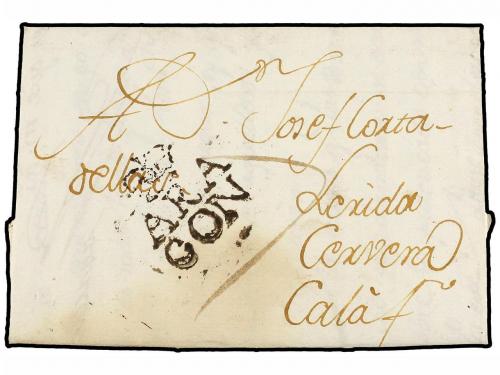 A Josef Corta-
dellas
Lerida
Cervera
Calàf
ARA
GON